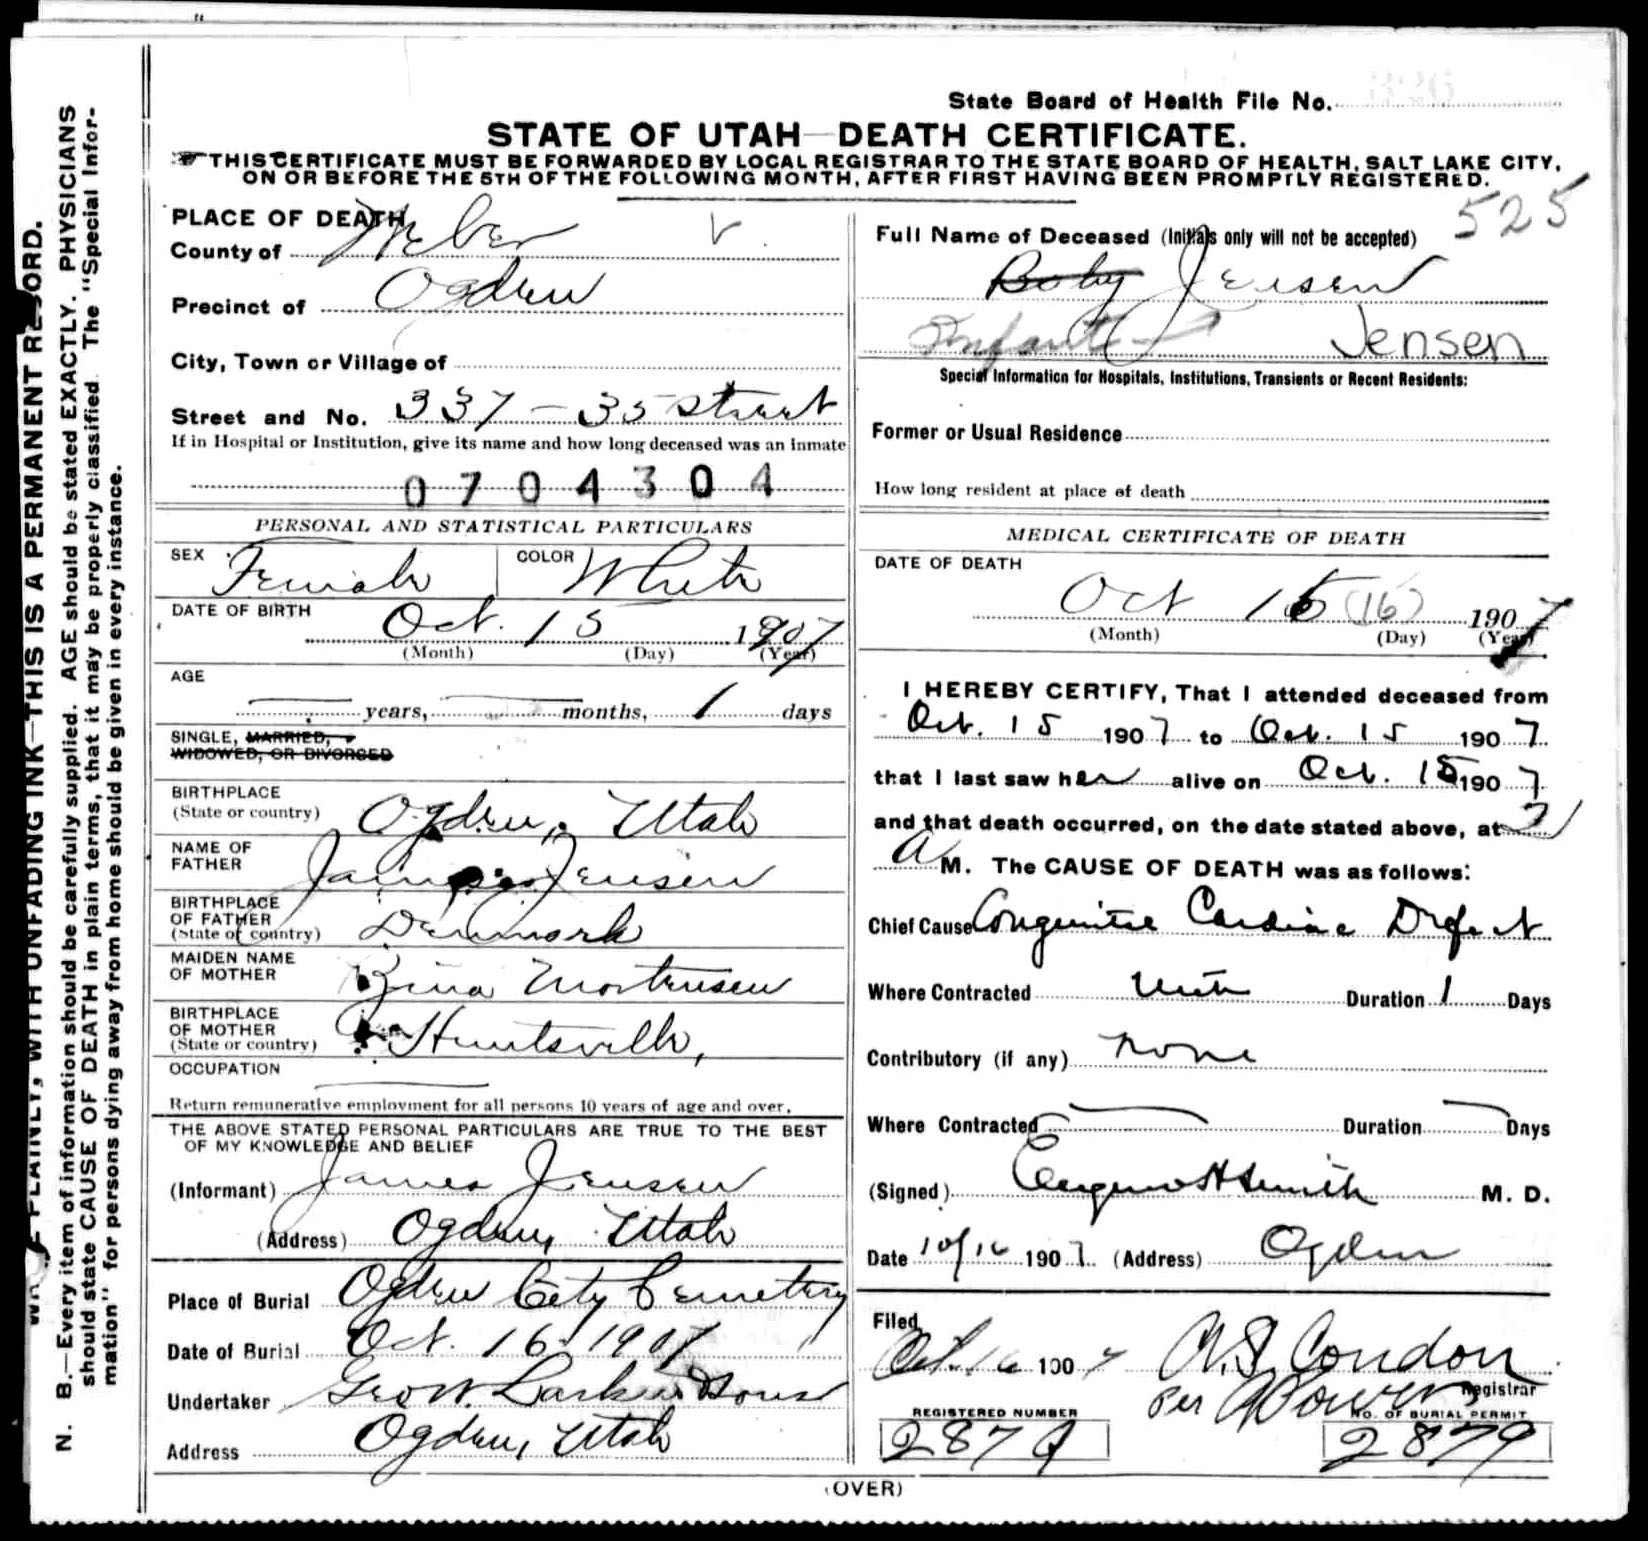 N. B.—Every item of information should be carefully supplied. AGE should be stated EXACTLY. PHYSICIANS
should state CAUSE OF DEATH in plain terms, that it may be properly classified. The "Special Infor-
mation" for persons dying away from home should be given in every instance.
PLAINLY, WITH UNFADING INK—THIS IS A PERMANENT RECORD.
State Board of Health File No. 326
STATE OF UTAH—DEATH CERTIFICATE.
THIS CERTIFICATE MUST BE FORWARDED BY LOCAL REGISTRAR TO THE STATE BOARD OF HEALTH, SALT LAKE CITY,
ON OR BEFORE THE 5TH OF THE FOLLOWING MONTH, AFTER FIRST HAVING BEEN PROMPTLY REGISTERED.
525
PLACE OF DEATH
County of Weber
Precinct of Ogden
City, Town or Village of
Street and No. 337 - 35 street
If in Hospital or Institution, give its name and how long deceased was an inmate
0704304
Full Name of Deceased (Initials only will not be accepted)
Baby Jensen
Infant Jensen
Special Information for Hospitals, Institutions, Transients or Recent Residents:
Former or Usual Residence
How long resident at place of death
PERSONAL AND STATISTICAL PARTICULARS
SEX Female COLOR White
DATE OF BIRTH Oct. 15 1907
(Month) (Day) (Year)
AGE
years, months, 1 days
SINGLE, MARRIED,
WIDOWED, OR DIVORCED
BIRTHPLACE
(State or country) Ogden, Utah
NAME OF
FATHER James Jensen
BIRTHPLACE
OF FATHER
(State or country) Denmark
MAIDEN NAME
OF MOTHER Zina Mortensen
BIRTHPLACE
OF MOTHER
(State or country) Huntsville,
OCCUPATION
Return remunerative employment for all persons 10 years of age and over.
THE ABOVE STATED PERSONAL PARTICULARS ARE TRUE TO THE BEST
OF MY KNOWLEDGE AND BELIEF
(Informant) James Jensen
(Address) Ogden, Utah
Place of Burial Ogden City Cemetery
Date of Burial Oct. 16 1907
Undertaker Geo W. Larkin & Sons
Address Ogden, Utah
MEDICAL CERTIFICATE OF DEATH
DATE OF DEATH
Oct 15 (16) 1907
(Month) (Day) (Year)
I HEREBY CERTIFY, That I attended deceased from
Oct. 15 1907 to Oct. 15 1907
that I last saw her alive on Oct. 15 1907
and that death occurred, on the date stated above, at 2
A M. The CAUSE OF DEATH was as follows:
Chief Cause Congenital Cardiac Defect
Where Contracted Duration 1 Days
Contributory (if any) None
Where Contracted Duration Days
(Signed) Smith M. D.
Date 10/16 1907 (Address) Ogden
Filed
Oct. 16 1907 Condon
Registrar
per
REGISTERED NUMBER
2879
NO. OF BURIAL PERMIT
2879
(OVER)